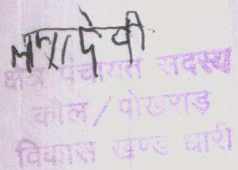 लता देवी
क्षेत्र पंचायत सदस्य
कौल / पोखराड़
विकास खण्ड धारी